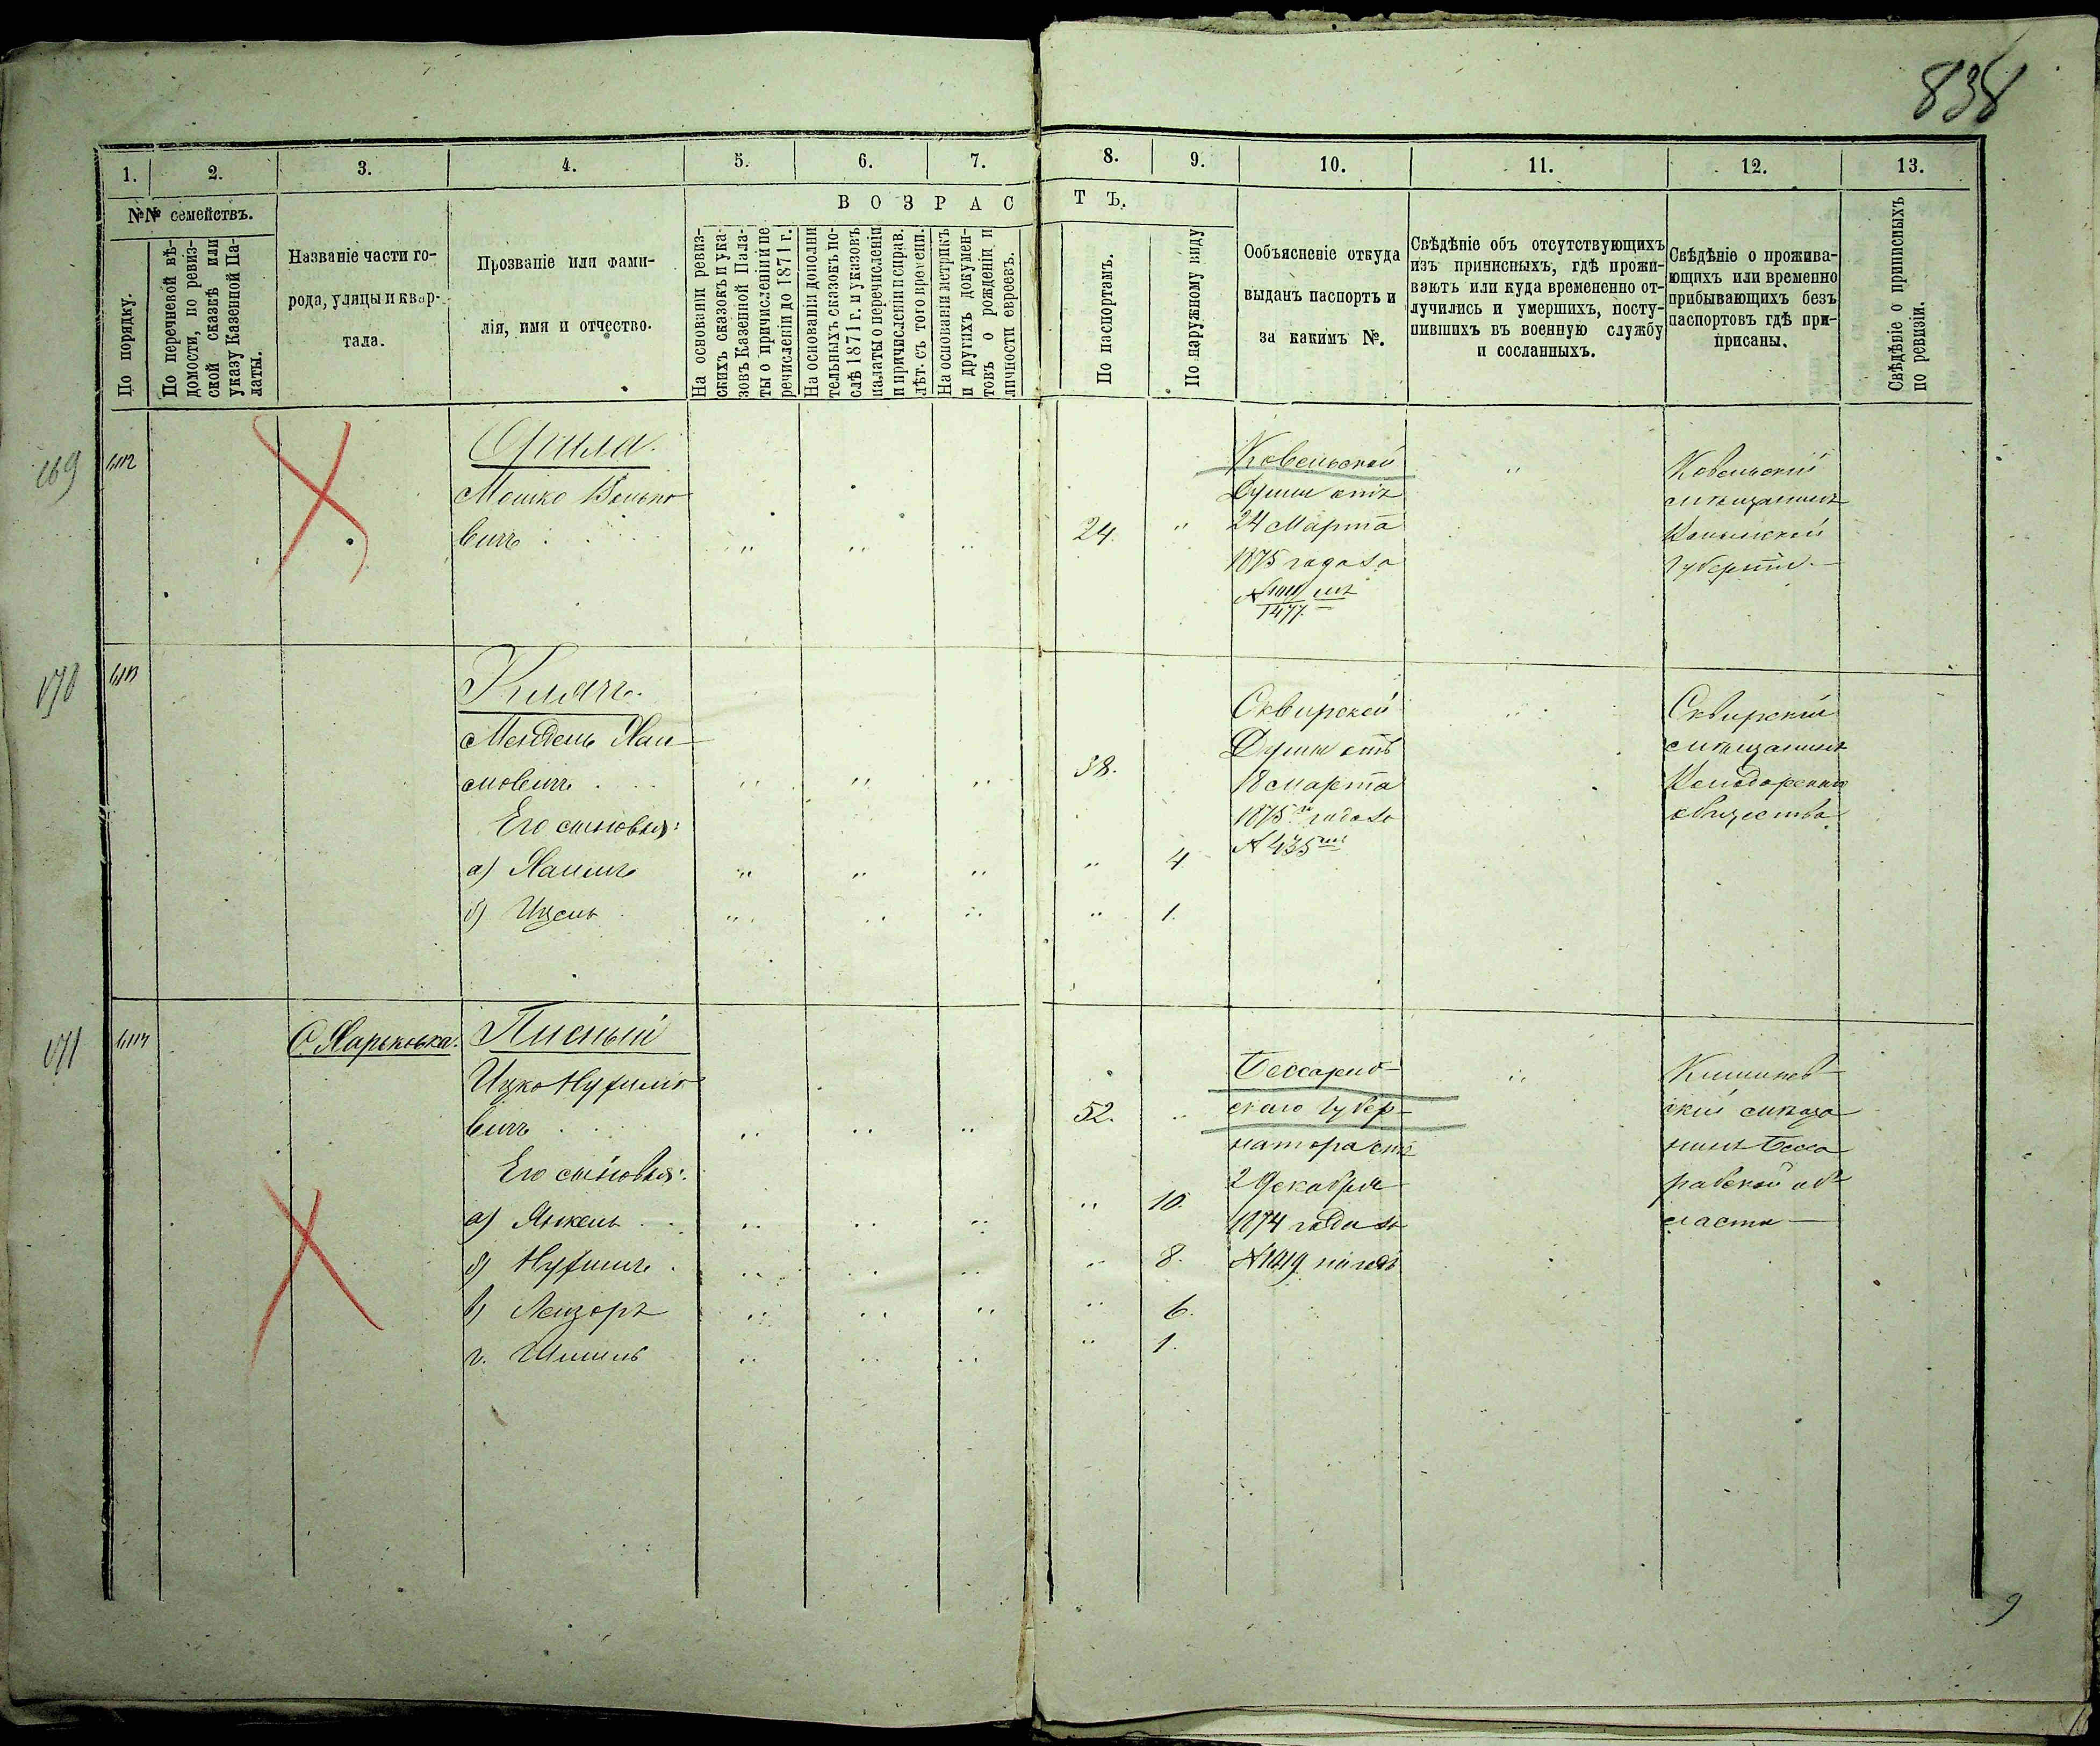 838
1.
2.
3.
4.
5.
6.
7.
8.
9.
10.
11.
12.
13.
№№ семействъ.
По порядку.
По перечневой вѣ-
домости, по ревиз-
ской сказкѣ или
указу Казенной Па-
латы.
Названіе части го-
рода, улицы и квар-
тала.
Прозваніе или фами-
лія, имя и отчество.
ВОЗРАСТЪ.
На основаніи ревиз-
скихъ сказокъ и ука-
зовъ Казенной Пала-
ты о причисленіи и пе
речисленіи до 1871 г.
На основаніи дополни
тельныхъ сказокъ по-
слѣ 1871 г. и указовъ
палаты о перечисленіи
и причисленіи и справ.
лѣт. съ того времени.
На основаніи метрикъ
и другихъ докумен-
товъ о рожденіи и
личности евреевъ.
По паспортамъ.
По наружному виду
Ообъясненіе откуда
выданъ паспортъ и
за какимъ №.
Свѣдѣніе объ отсутствующихъ
изъ приписныхъ, гдѣ прожи-
ваютъ или куда времененно от-
лучились и умершихъ, посту-
пившихъ въ военную службу
и сосланныхъ.
Свѣдѣніе о прожива-
ющихъ или временно
прибывающихъ безъ
паспортовъ гдѣ при-
писаны.
Свѣдѣніе о приписныхъ
по ревизіи.
169
Мошко Волько
вичъ
24.
Ковельской
Думы отъ
24 Марта
1875 года за
1477
Ковельскій
мѣщанинъ
Волынской
губерніи.
170
Мендель Хаи-
мовичъ
38.
Его сыновья:
а) Хаимъ
4
б) Ицель
1.
Сквирской
Думы отъ
18 марта
1875 года за
№ 435
Сквирскій
мѣщанинъ
общества
171
С. Харьковка.
Писный
Ицко Нухимо
вичъ
52.
Его сыновья:
а) Янкель
10.
б) Нухимъ
8.
в) Лейзоръ
6.
г. Шмиль
1.
Бессараб-
скаго Губер-
натора отъ
2 Декабря
1874 года за
Кишинев-
скій мѣща
нинъ Бесса
рабской об
ласти